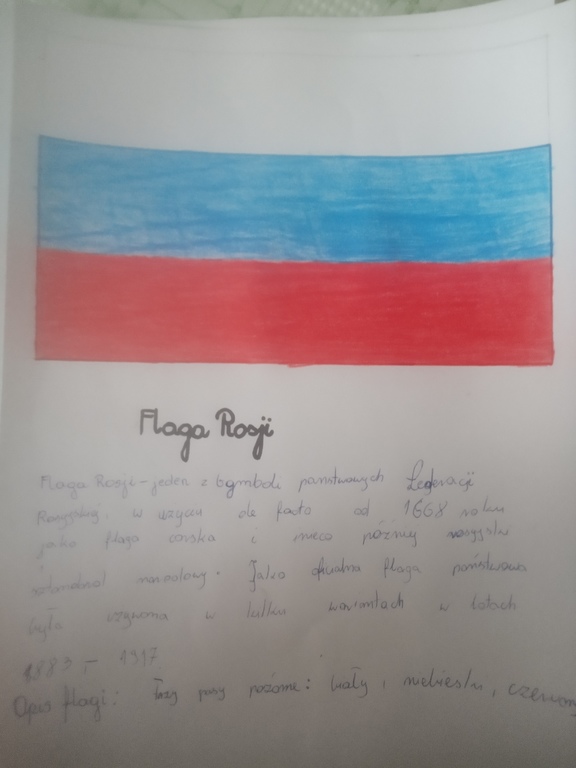 Flaga Rosji
Flaga Rosji - jeden z symboli państwowych Federacji
Rosyjskiej. w użyciu de facto od 1668 roku
jako flaga carska i nieco później rosyjski
sztandard narodowy. Jako oficjalna flaga państwowa
była używana w kilku wariantach w latach
1883 - 1917
Opis flagi: Trzy pasy poziome: biały, niebieski, czerwony